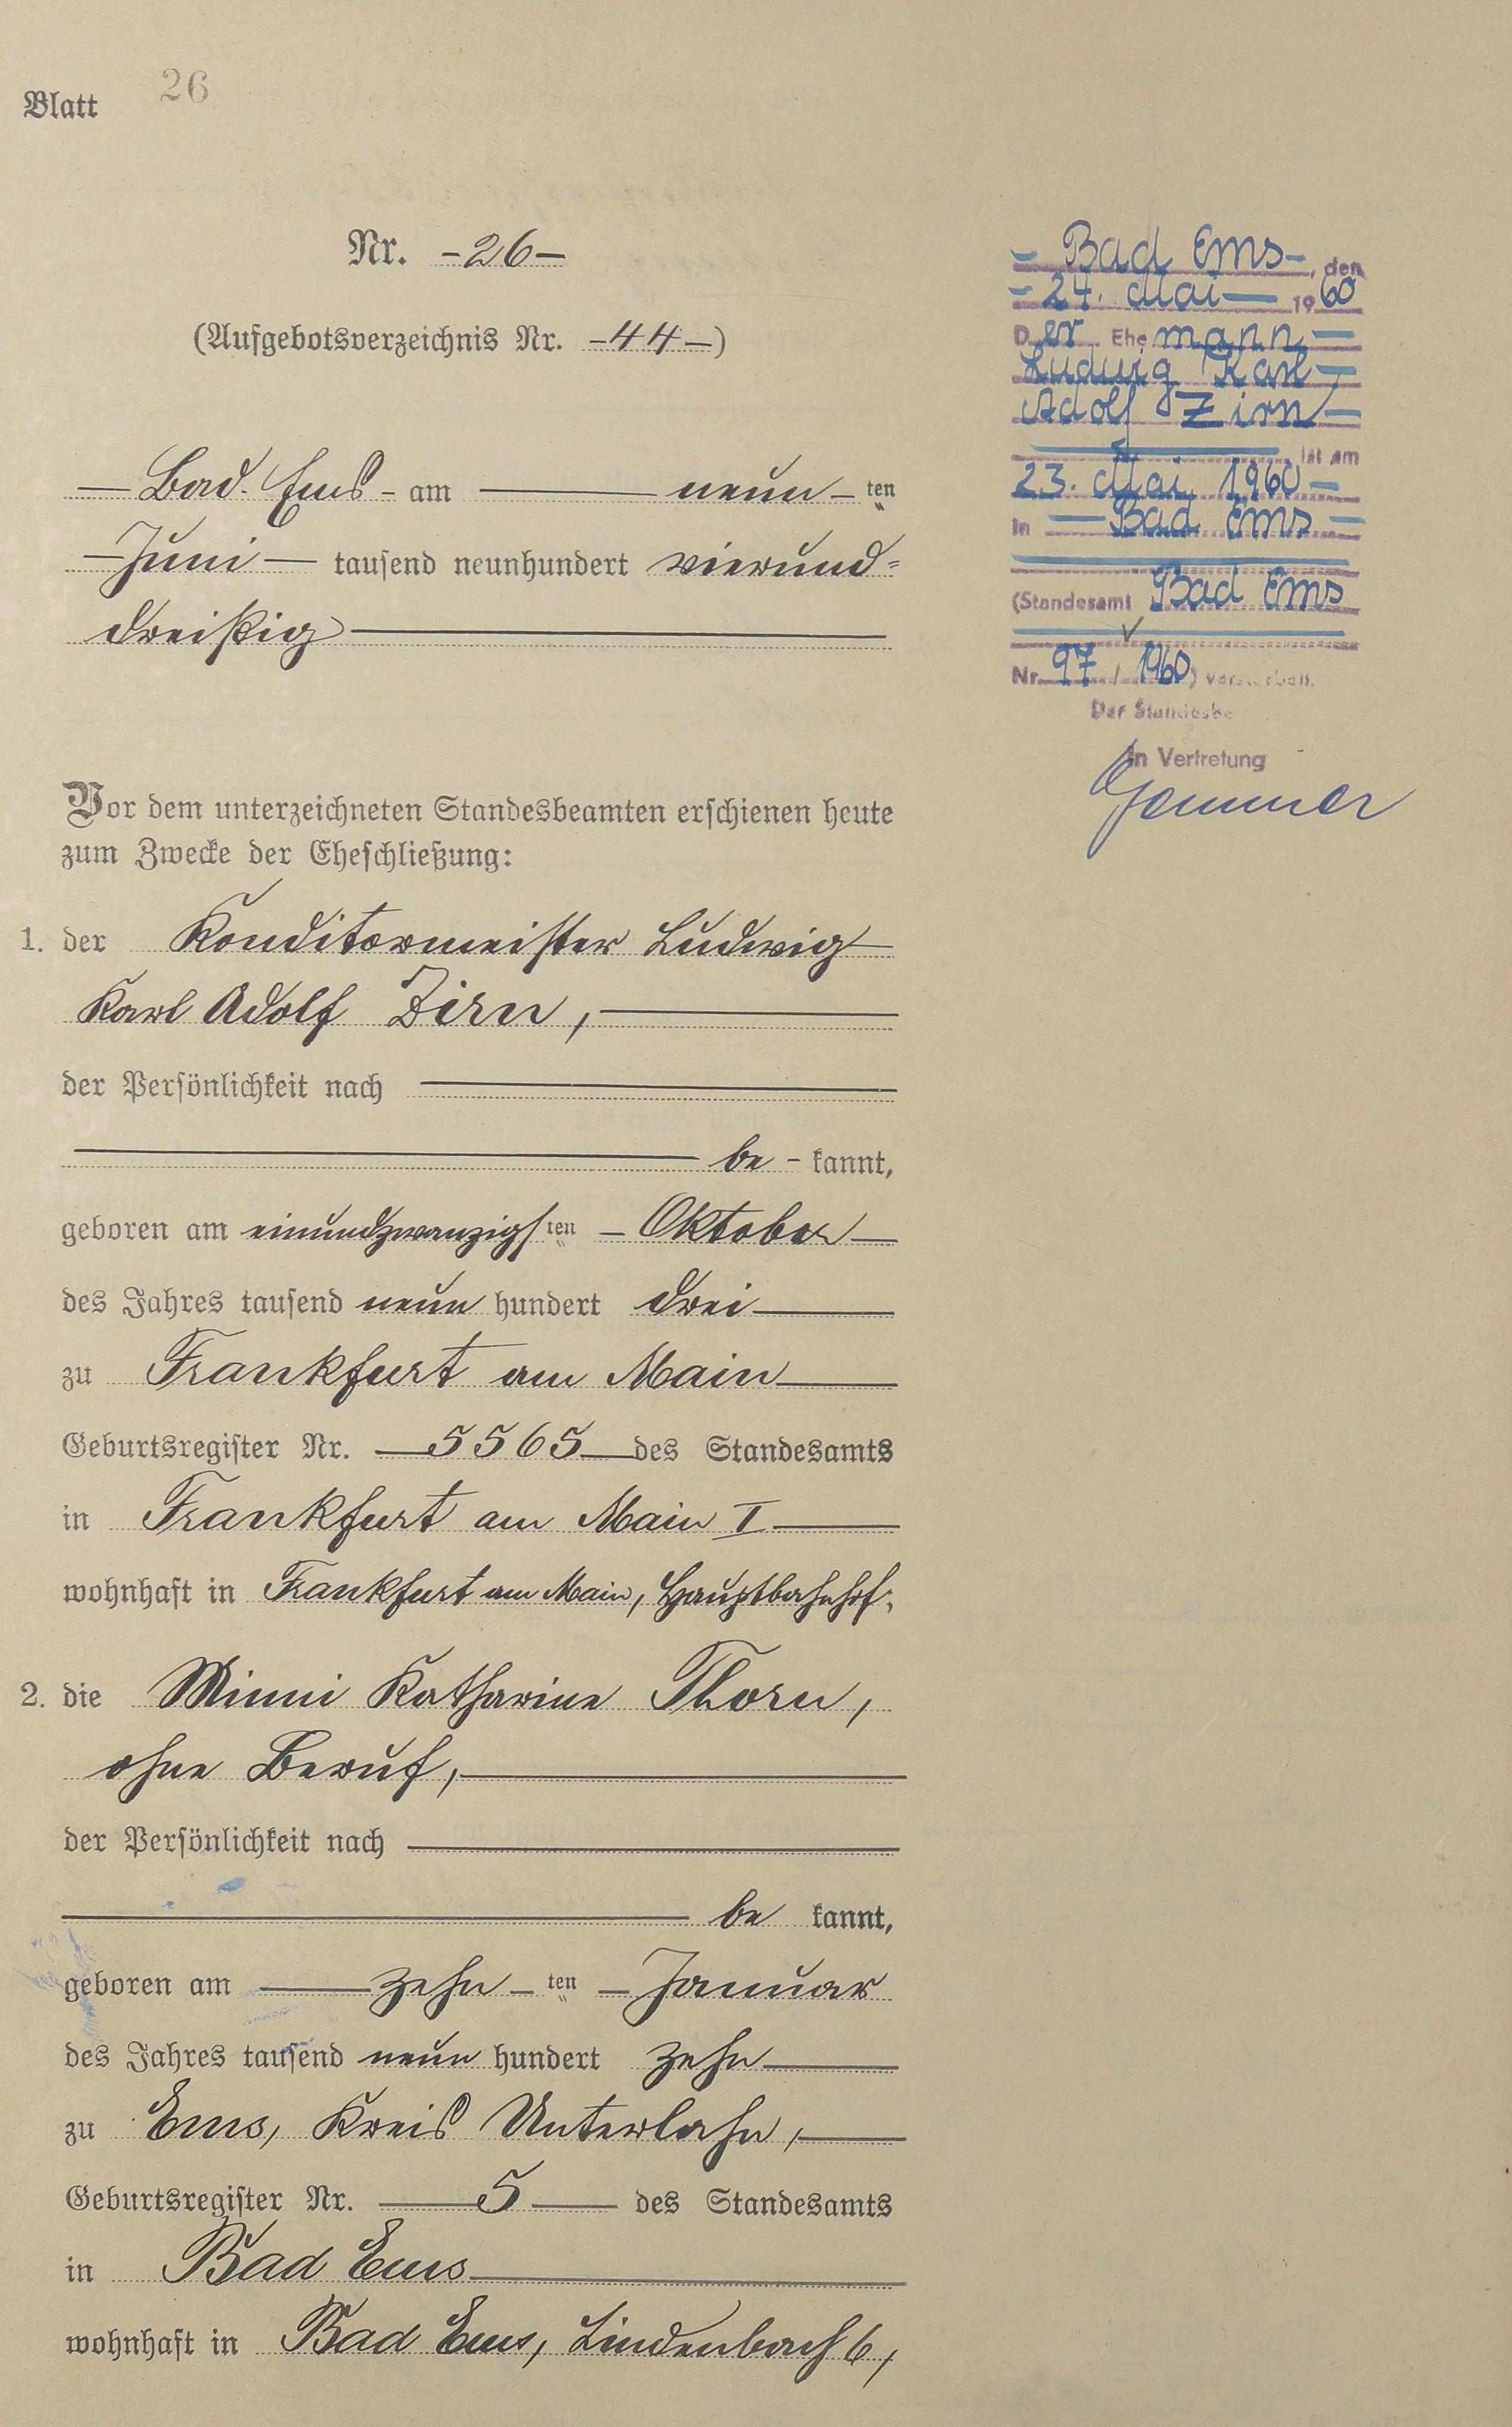 Blatt 26
Nr. -26-
(Aufgebotsverzeichnis Nr. -44-)
Bad Ems - am neun-ten
Juni tausend neunhundert vierund=
dreißig
Vor dem unterzeichneten Standesbeamten erschienen heute
zum Zwecke der Eheschließung:
1. der Konditormeister Ludwig
Karl Adolf Zirn,
der Persönlichkeit nach
be - kannt,
geboren am einundzwanzigsten - Oktober
des Jahres tausend neun hundert drei
zu Frankfurt am Main
Geburtsregister Nr. 5565 des Standesamts
in Frankfurt am Main I
wohnhaft in Frankfurt am Main, Hauptbahnhof;
2. die Minni Katharine Thorn,
ohne Beruf,
der Persönlichkeit nach
be kannt,
geboren am zehn-ten - Januar
des Jahres tausend neun hundert zehn
zu Ems, Kreis Unterlahn,
Geburtsregister Nr. 5 des Standesamts
in Bad Ems
wohnhaft in Bad Ems, Lindenbach 6,
- Bad Ems-, den
- 24. Mai 1960
Der Ehemann
Ludwig Karl
Adolf Zirn
ist am
23. Mai 1960
in Bad Ems
(Standesamt Bad Ems
Nr. 97 / 1960) verstorben.
Der Standesbe
In Vertretung